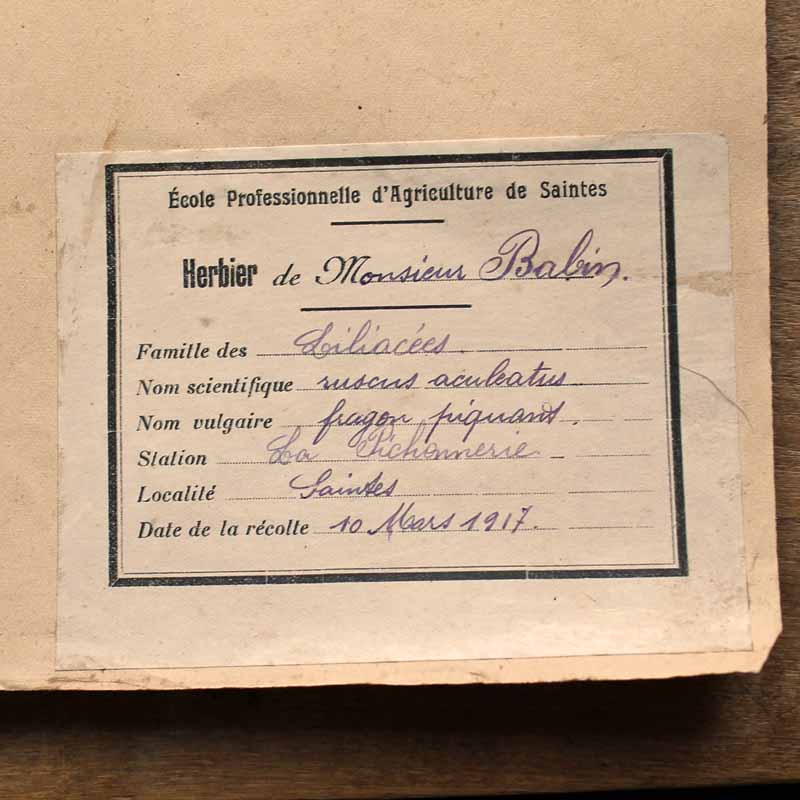 École Professionnelle d'Agriculture de Saintes
Herbier de Monsieur Babin.
Famille des Liliacées.
Nom scientifique ruscus aculeatus
Nom vulgaire fragon piquant.
Station La Pichonnerie
Localité Saintes
Date de la récolte 10 Mars 1917.